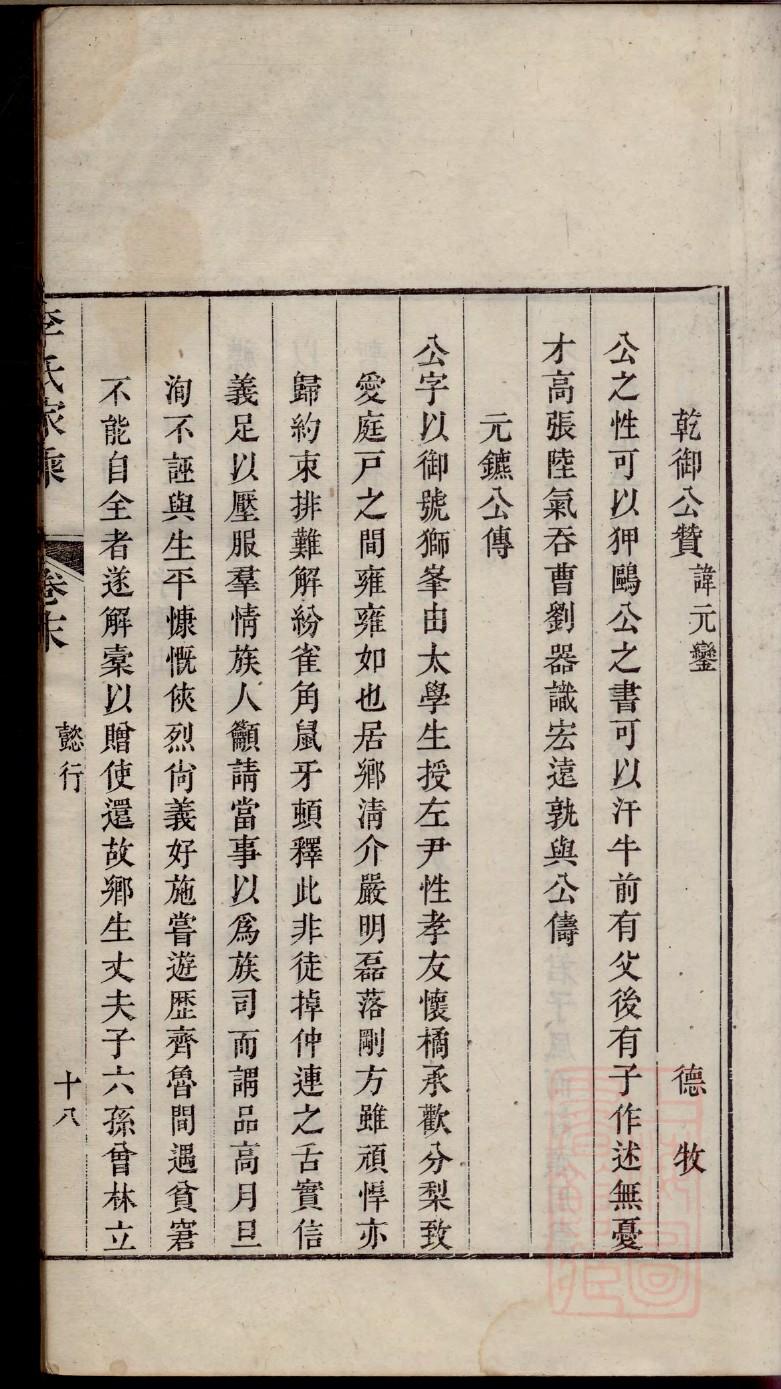 乾御公贊 諱元鑾 德牧
公之性可以狎鷗公之書可以汗牛前有父後有子作述無憂
才高張陸氣吞曹劉器識宏遠孰與公儔
元鑣公傳
公字以御號獅峯由太學生授左尹性孝友懷橘承歡分梨致
愛庭戸之間雍雍如也居鄉淸介嚴明磊落剛方雖頑悍亦
歸約束排難解紛雀角鼠牙頓釋此非徒掉仲連之舌實信
義足以壓服羣情族人籲請當事以爲族司而謂品高月旦
洵不誣與生平慷慨俠烈尙義好施嘗遊歷齊魯間遇貧窘
不能自全者遂解橐以贈使還故鄉生丈夫子六孫曾林立
李氏家乘 卷末 懿行 十八